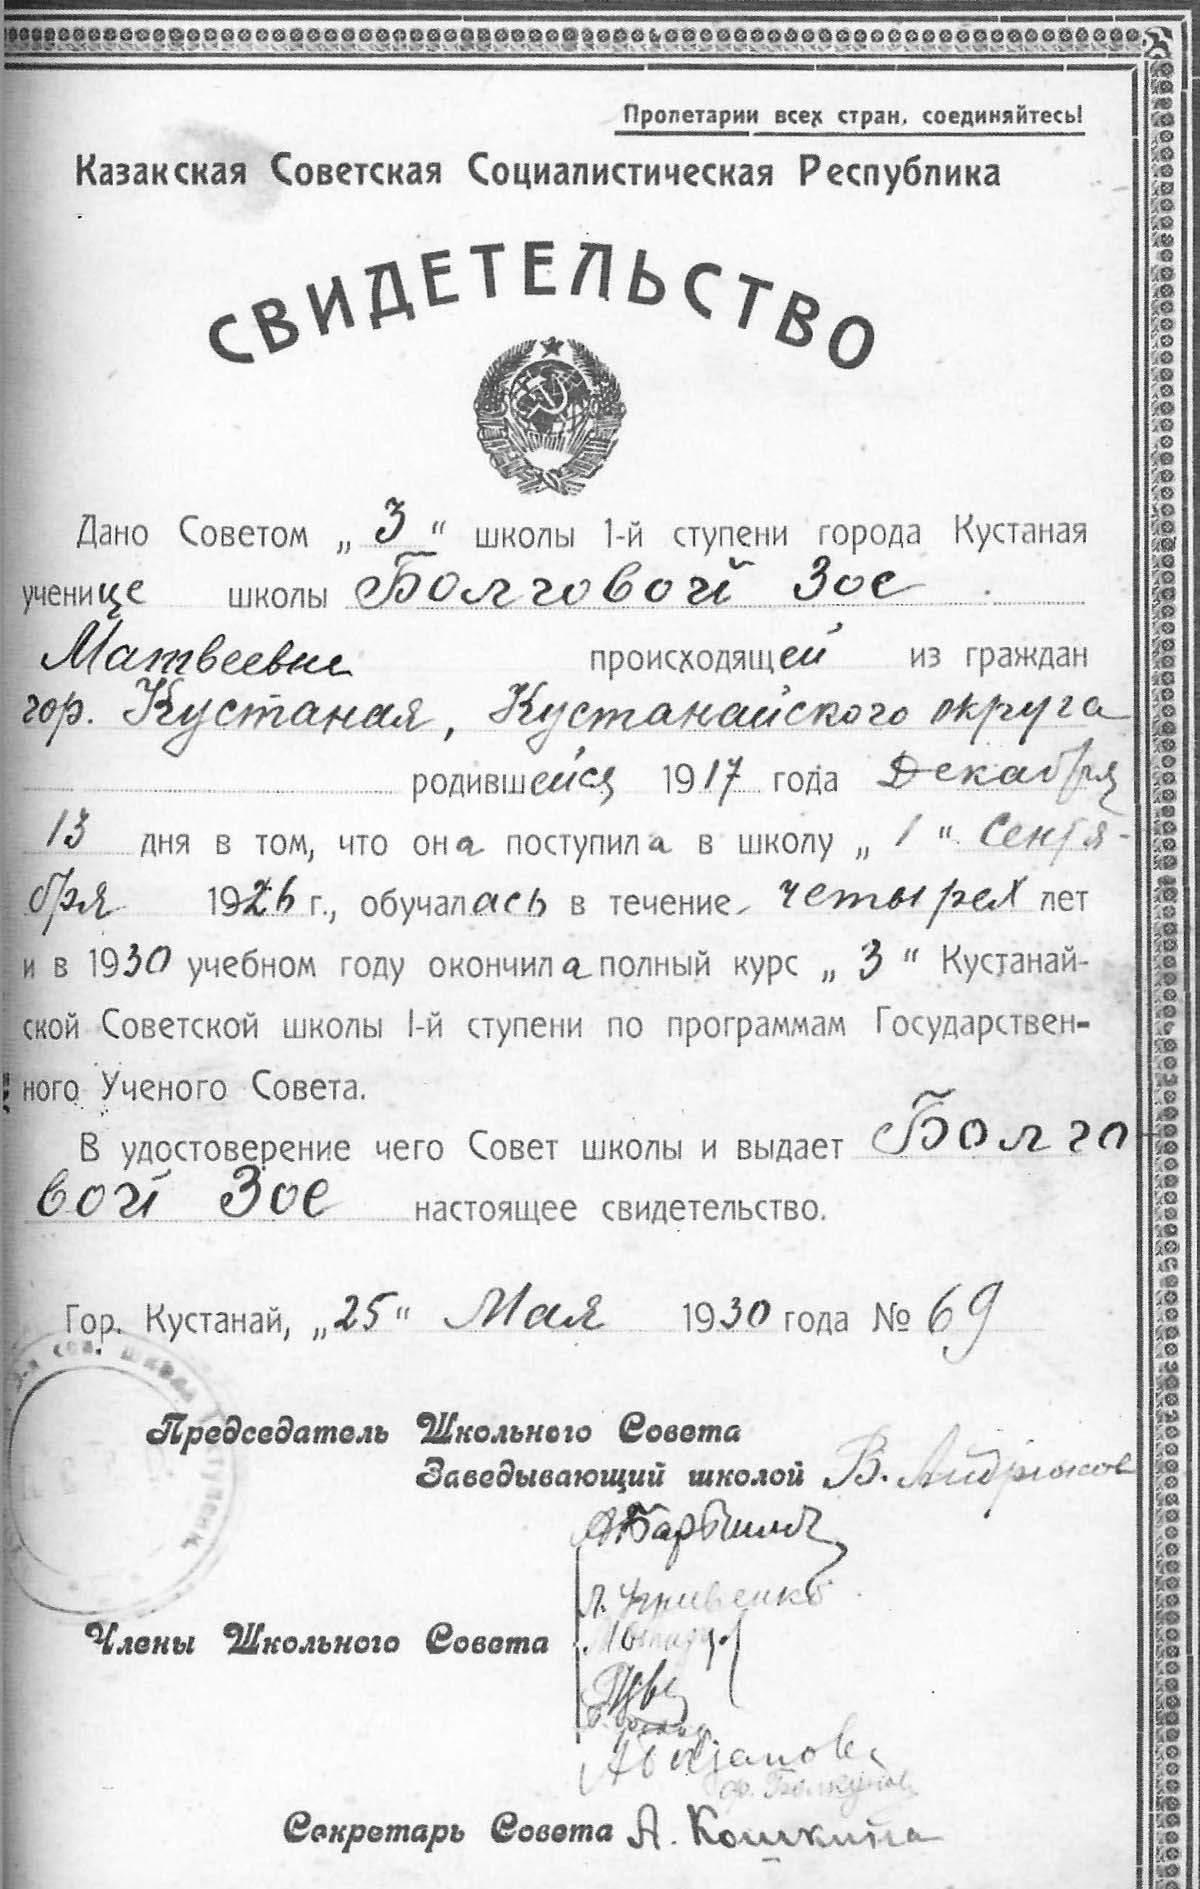 Пролетарии всех стран, соединяйтесь!
Казакская Советская Социалистическая Республика
СВИДЕТЕЛЬСТВО
Дано Советом „3“ школы 1-й ступени города Кустаная
ученице школы Болговой Зое
Матвеевне происходящей из граждан
гор. Кустаная, Кустанайского округа
родившейся 1917 года Декабря
13 дня в том, что она поступила в школу „1“ Сентя-
бря 1926 г., обучалась в течение четырех лет
и в 1930 учебном году окончила полный курс „3“ Кустанай-
ской Советской школы I-й ступени по программам Государствен-
ного Ученого Совета.
В удостоверение чего Совет школы и выдает Болго
вой Зое настоящее свидетельство.
Гор. Кустанай, „25“ Мая 1930 года № 69
сов. школа I ступени
Председатель Школьного Совета
Заведывающий школой В. Андрюков
Члены Школьного Совета
Секретарь Совета А. Кошкина